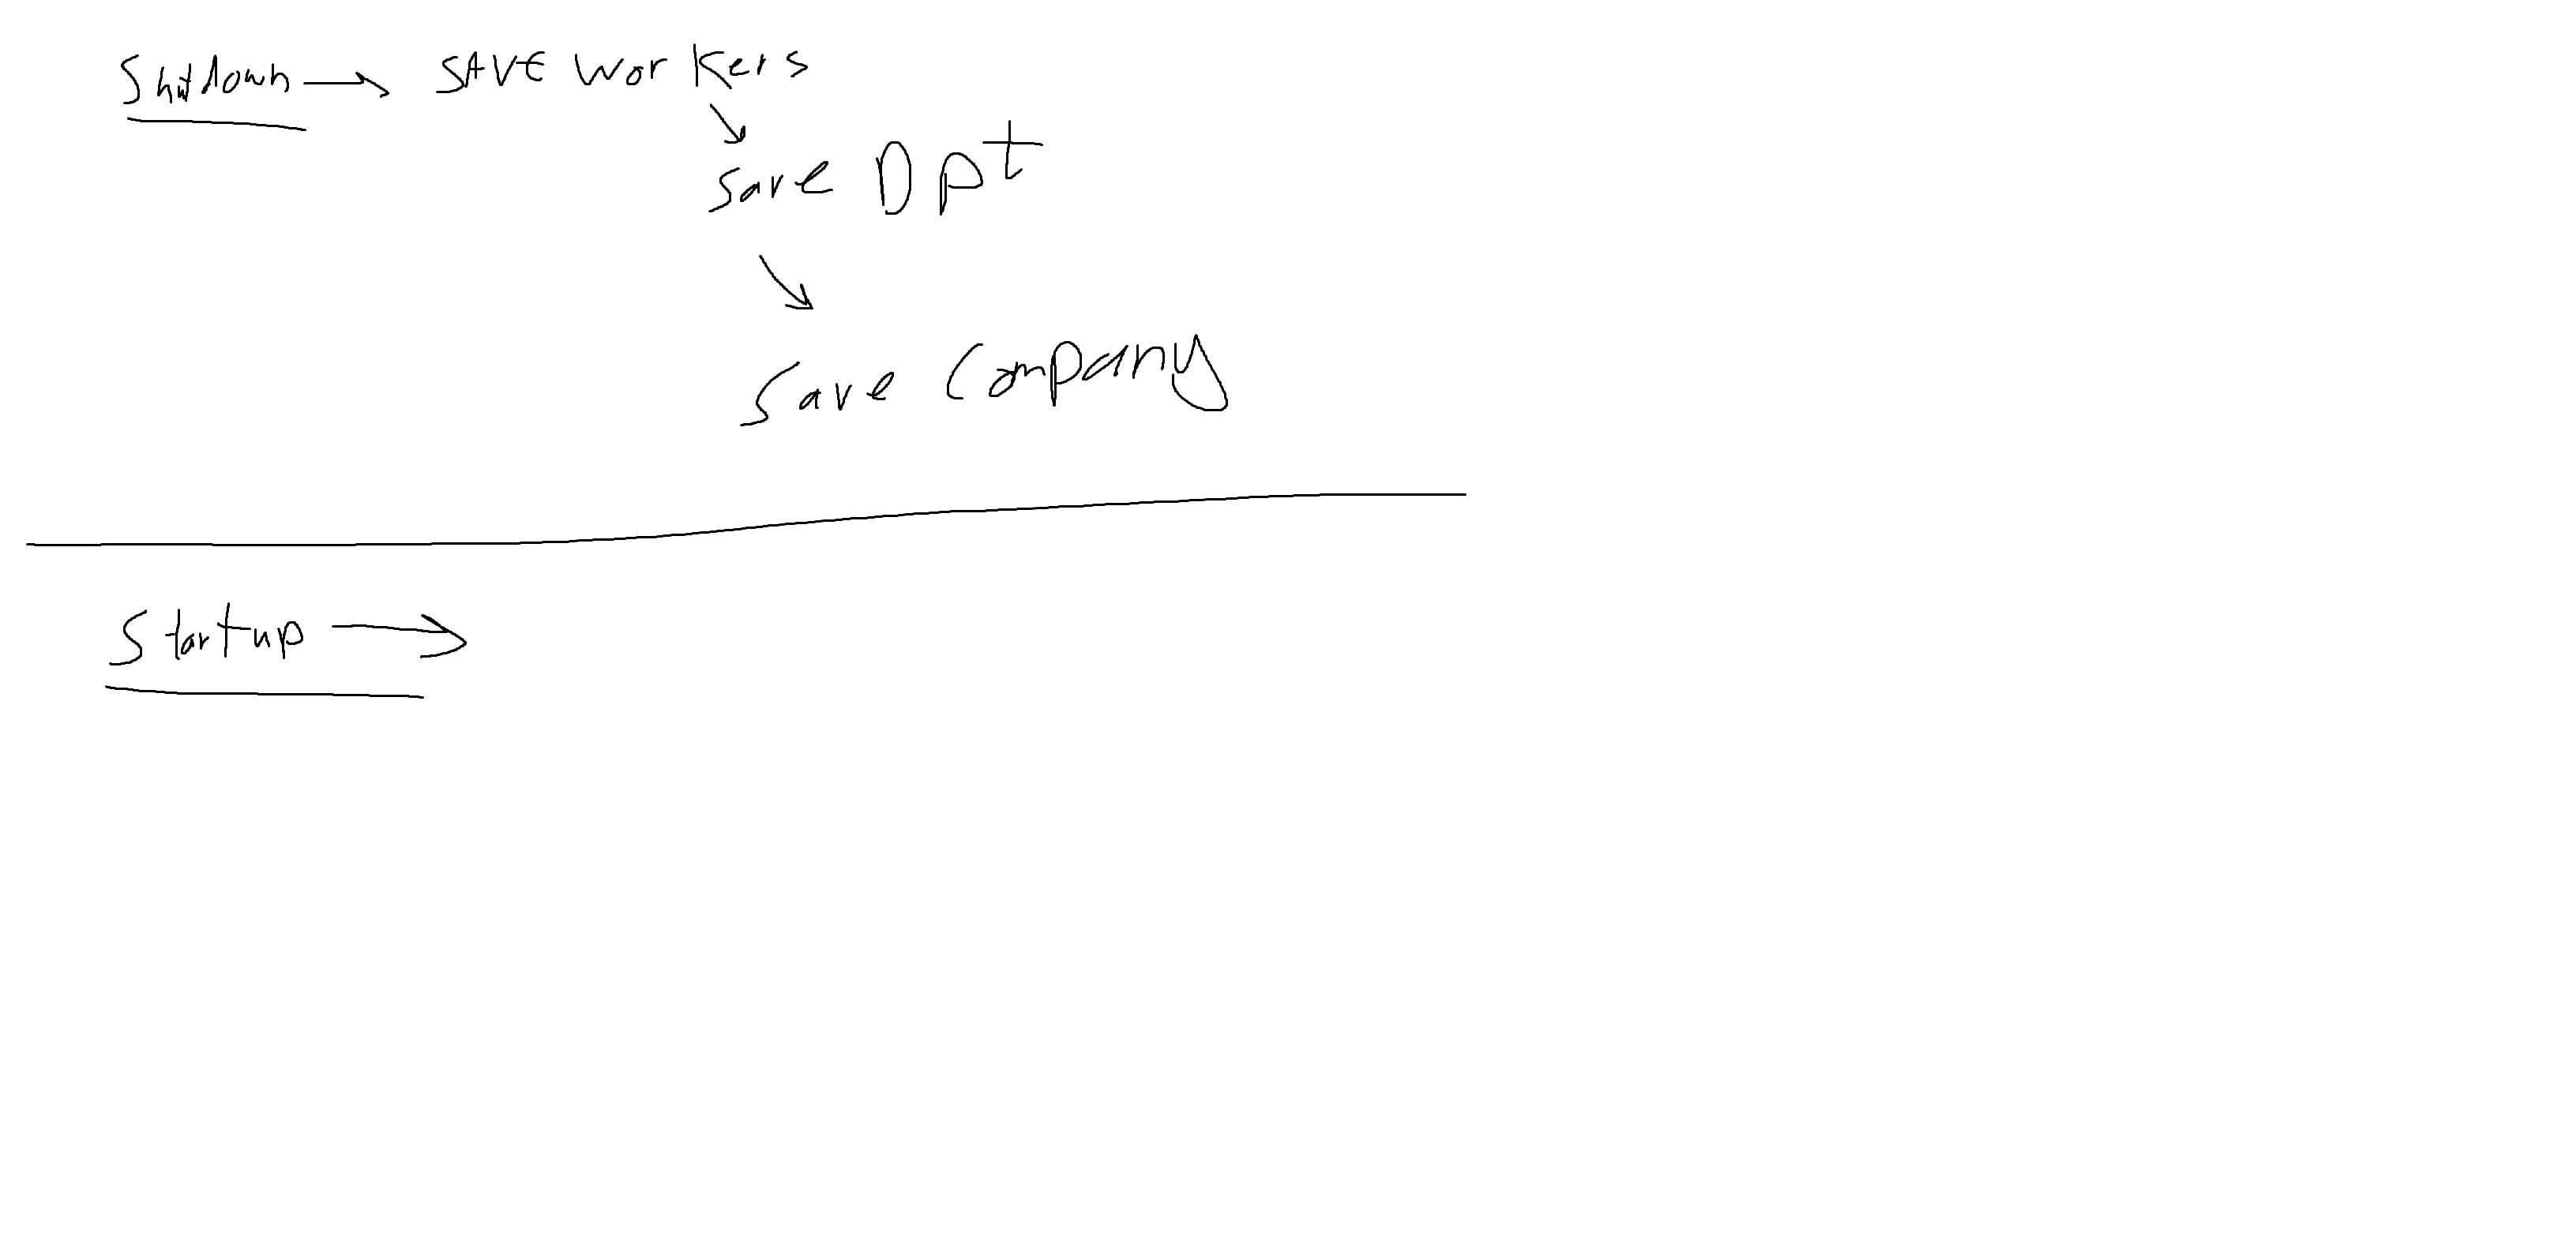 Shutdown → SAVE Workers
Save Dpt
Save Company
Startup →